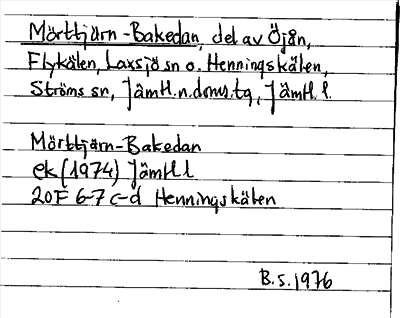 Mörttjärn-Bakedan, del av Öjån,
Flykälen, Laxsjö sn o. Henningskälen,
Ströms sn, Jämtl.n.doms.tg, Jämtl. l.
Mörttjärn-Bakedan
ek (1974) Jämtl l
20F 6-7 c-d Henningskälen
B.S. 1976